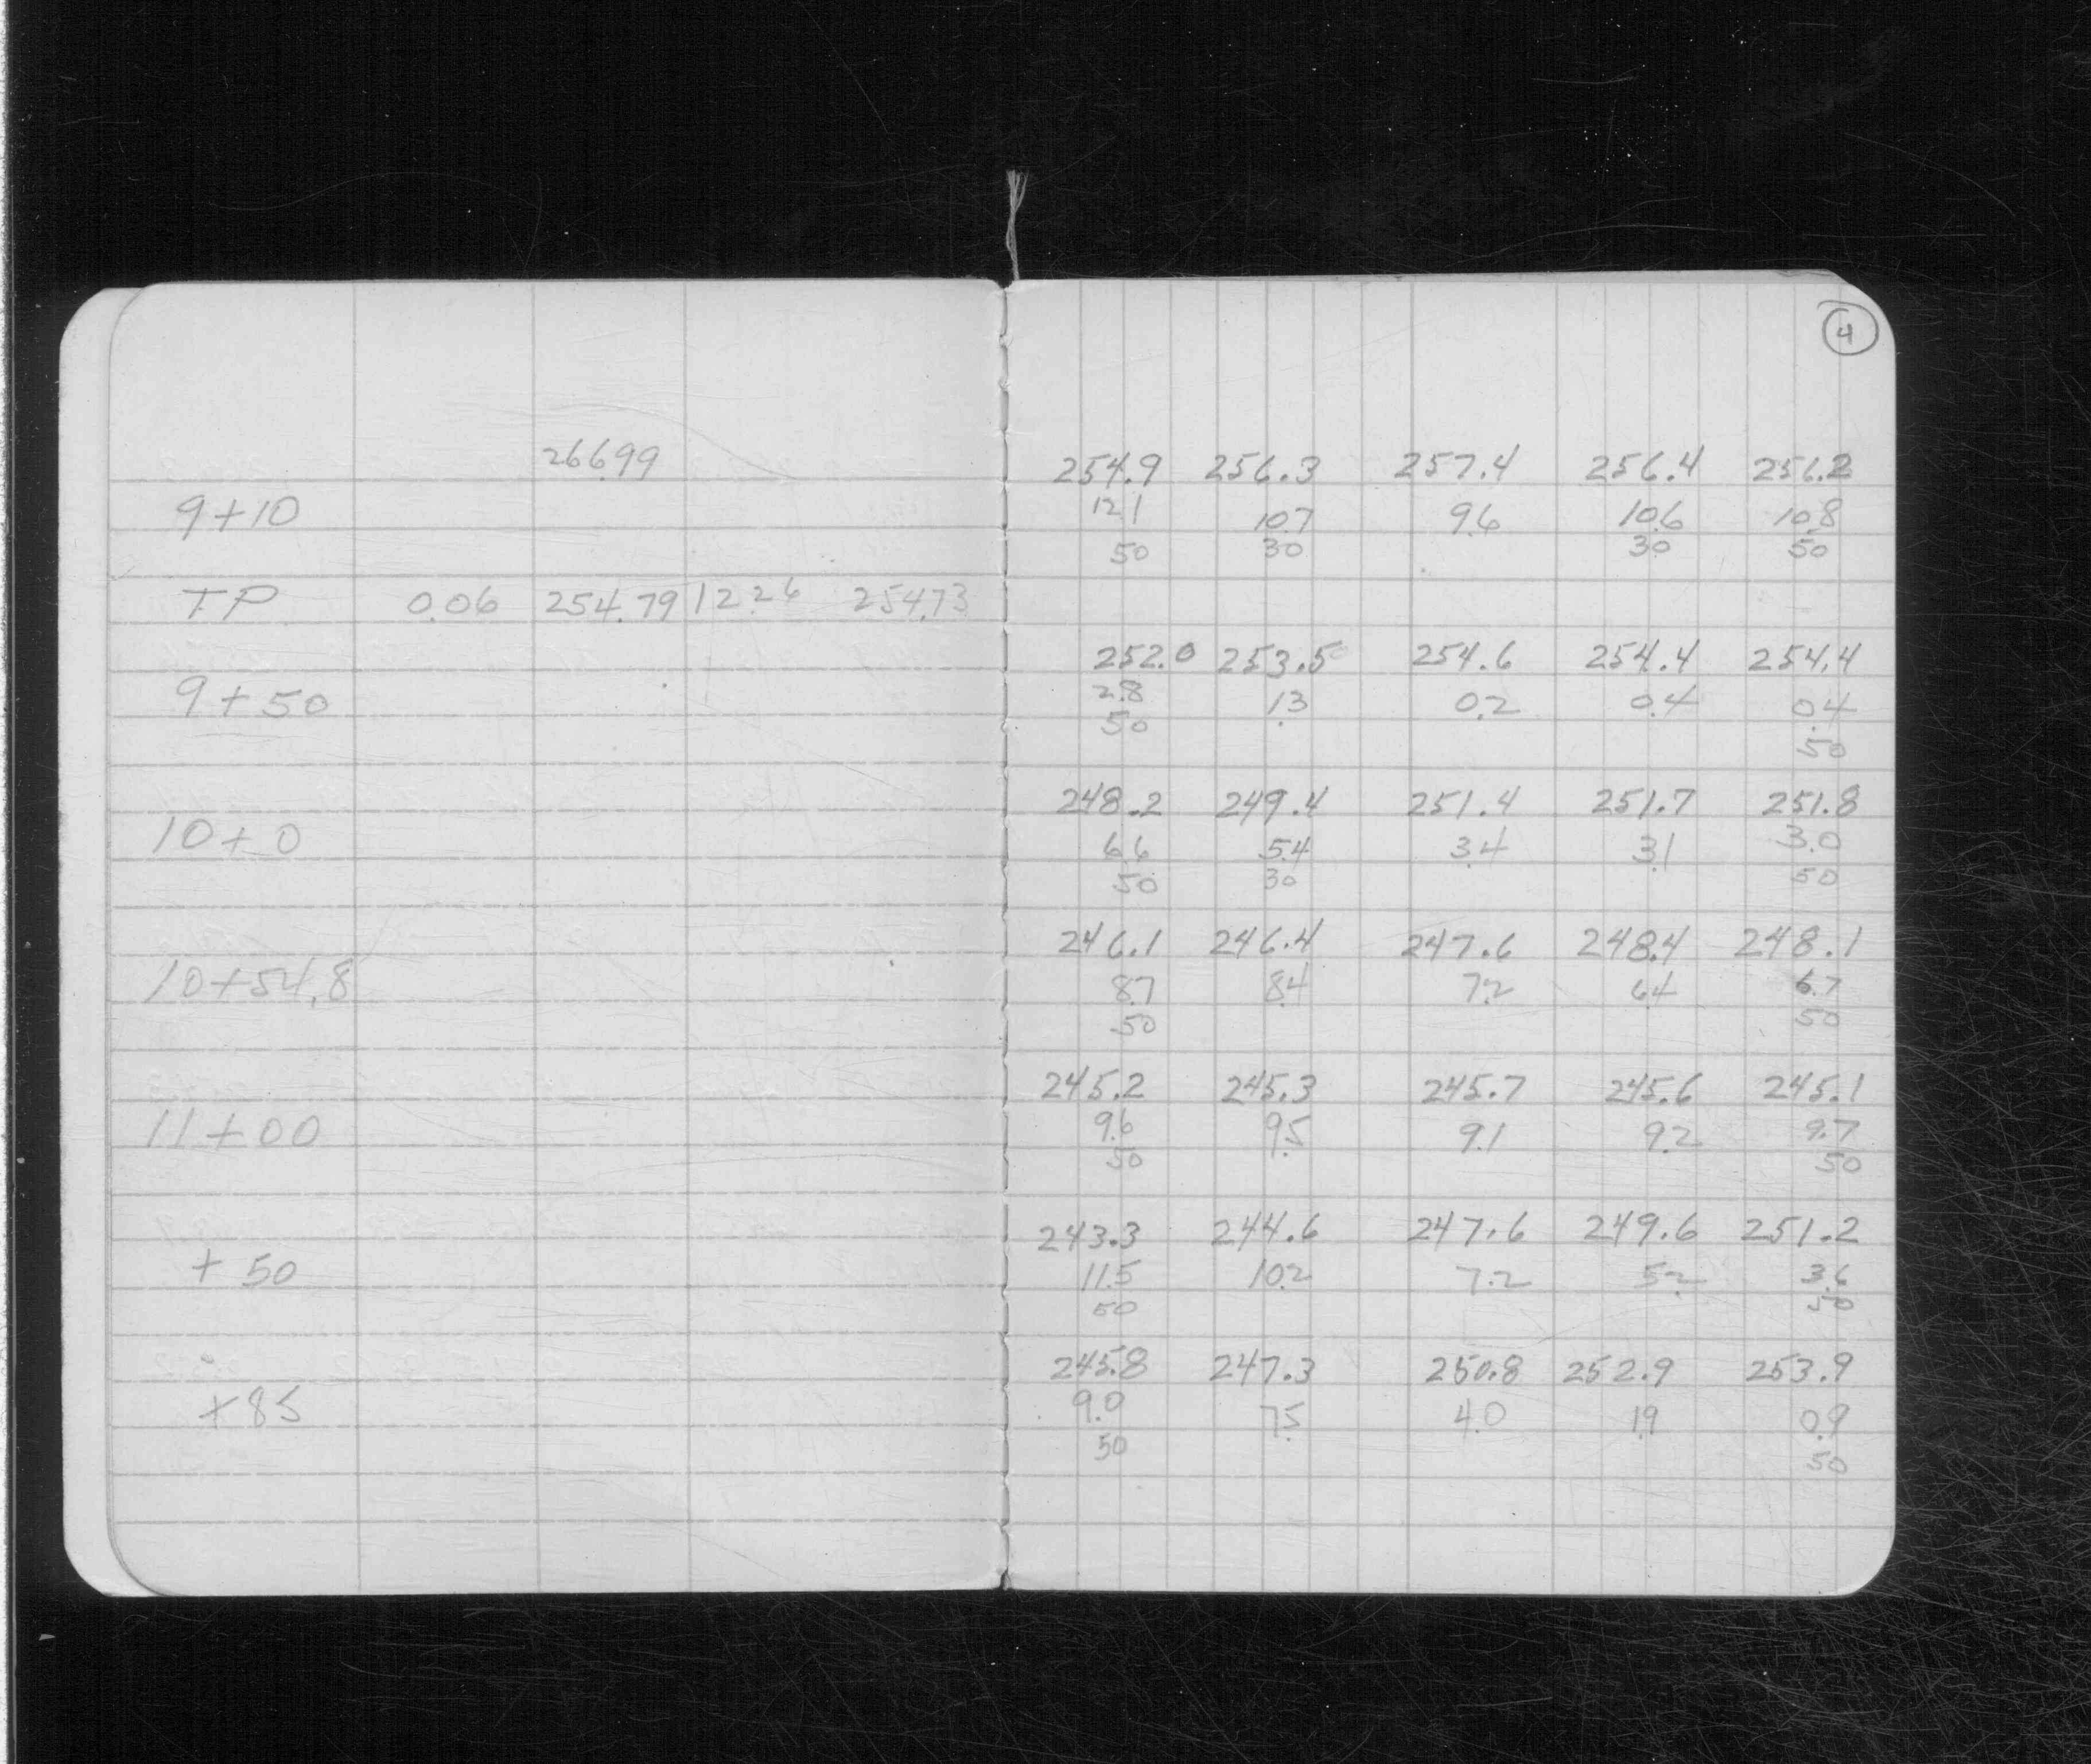 4
266.99
9+10
T.P. 0.06 254.79 12.26 254.73
9+50
10+0
10+54.8
11+00
+50
+85
254.9 256.3 257.4 256.4 256.2
12.1 10.7 9.6 10.6 10.8
50 30 30 50
252.0 253.5 254.6 254.4 254.4
2.8 1.3 0.2 0.4 0.4
50 50
248.2 249.4 251.4 251.7 251.8
6.6 5.4 3.4 3.1 3.0
50 30 50
246.1 246.4 247.6 248.4 248.1
8.7 8.4 7.2 6.4 6.7
50 50
245.2 245.3 245.7 245.6 245.1
9.6 9.5 9.1 9.2 9.7
50 50
243.3 244.6 247.6 249.6 251.2
11.5 10.2 7.2 5.2 3.6
50 50
245.8 247.3 250.8 252.9 253.9
9.0 7.5 4.0 1.9 0.9
50 50